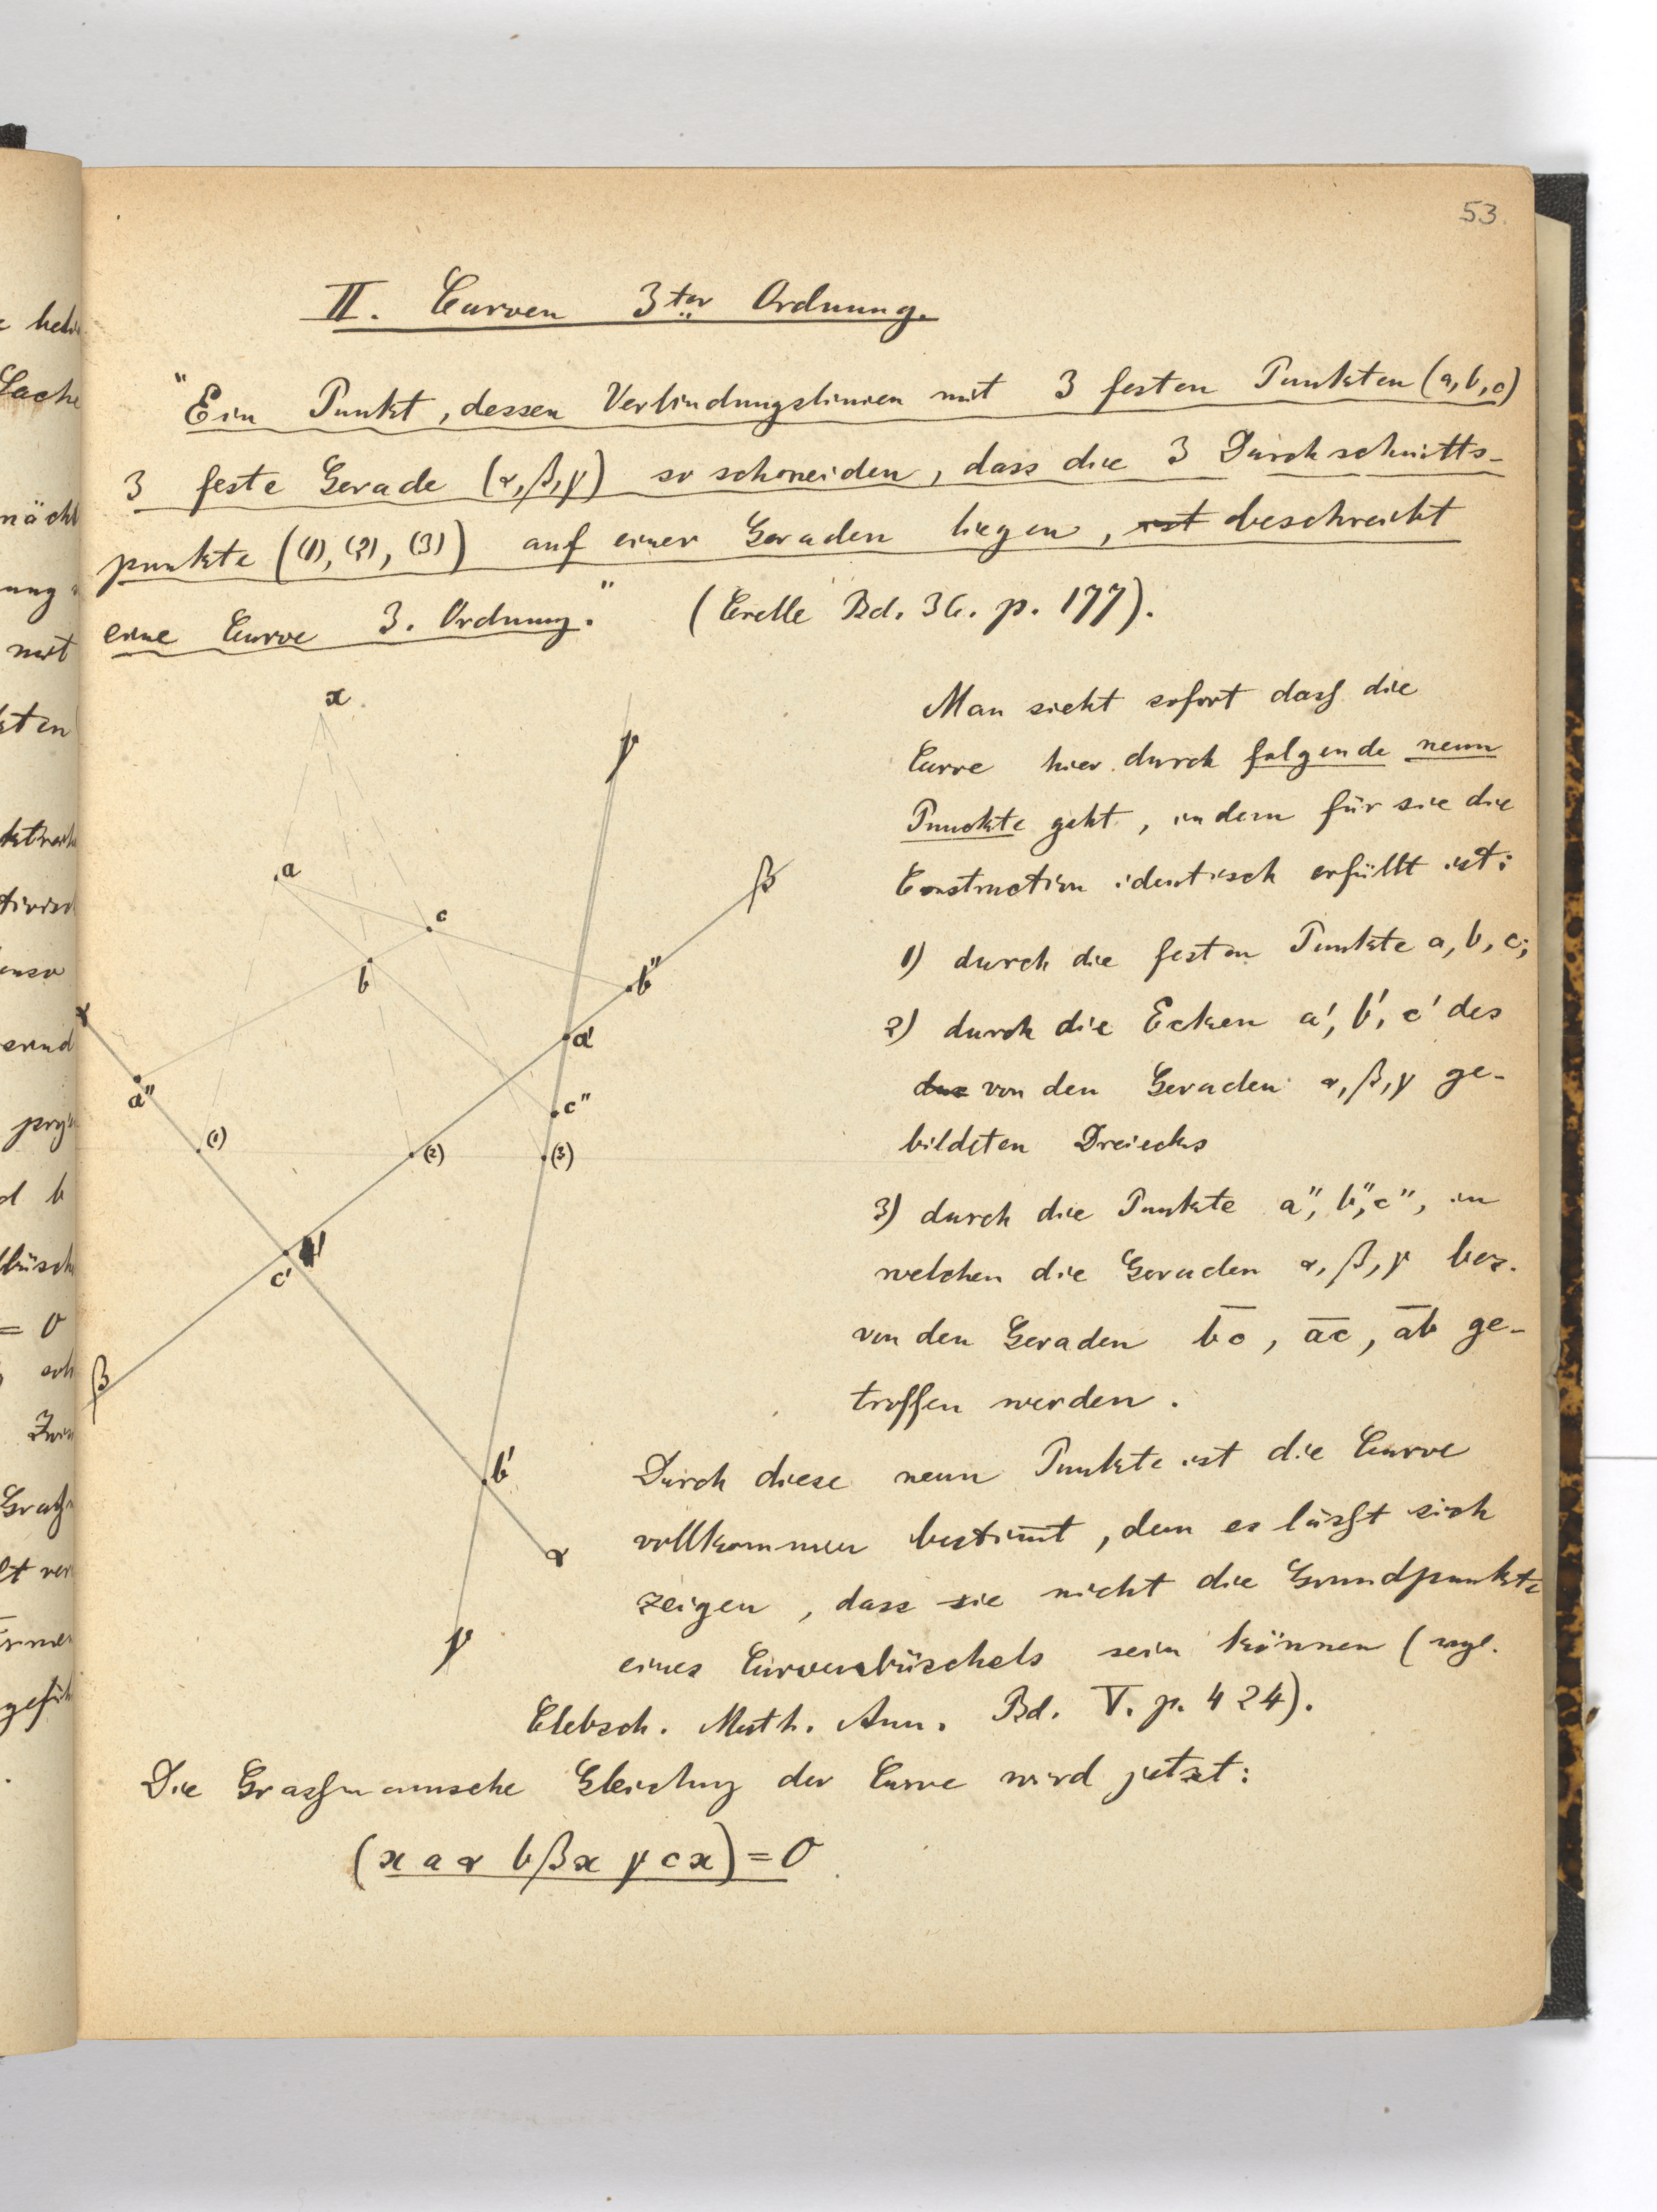 53.
II. Curven 3ter Ordnung.
"Ein Punkt, dessen Verbindungslinien mit 3 festen Punkten (a, b, c)
3 feste Gerade (α, β, γ) so schneiden, dass die 3 Durchschnitts-
punkte ((1), (2), (3)) auf einer Geraden liegen, ist beschreibt
eine Curve 3. Ordnung." (Crelle Bd. 36. p. 177).
Man sieht sofort dass die
Curve hier durch folgende neun
Punckte geht, indem für sie die
Construction identisch erfüllt ist:
1) durch die festen Punkte a, b, c;
2) durch die Ecken a', b', c' des
das von den Geraden α, β, γ ge-
bildeten Dreiecks
3) durch die Punkte a", b", c", in
welchen die Geraden α, β, γ bez.
von den Geraden bc, ac, ab ge-
troffen werden.
x
γ
a
β
c
b
b"
α
a'
a"
c"
(1)
(2)
(3)
c'
β
b'
α
γ
Durch diese neun Punkte ist die Curve
vollkommen bestimt, denn es lässt sich
zeigen, dass sie nicht die Grundpunkte
eines Curvenbüschels sein können (vgl.
Clebsch. Math. Ann. Bd. V. p. 424).
Die Grassmannsche Gleichung der Curve wird jetzt:
(x a α b β x γ c x) = 0